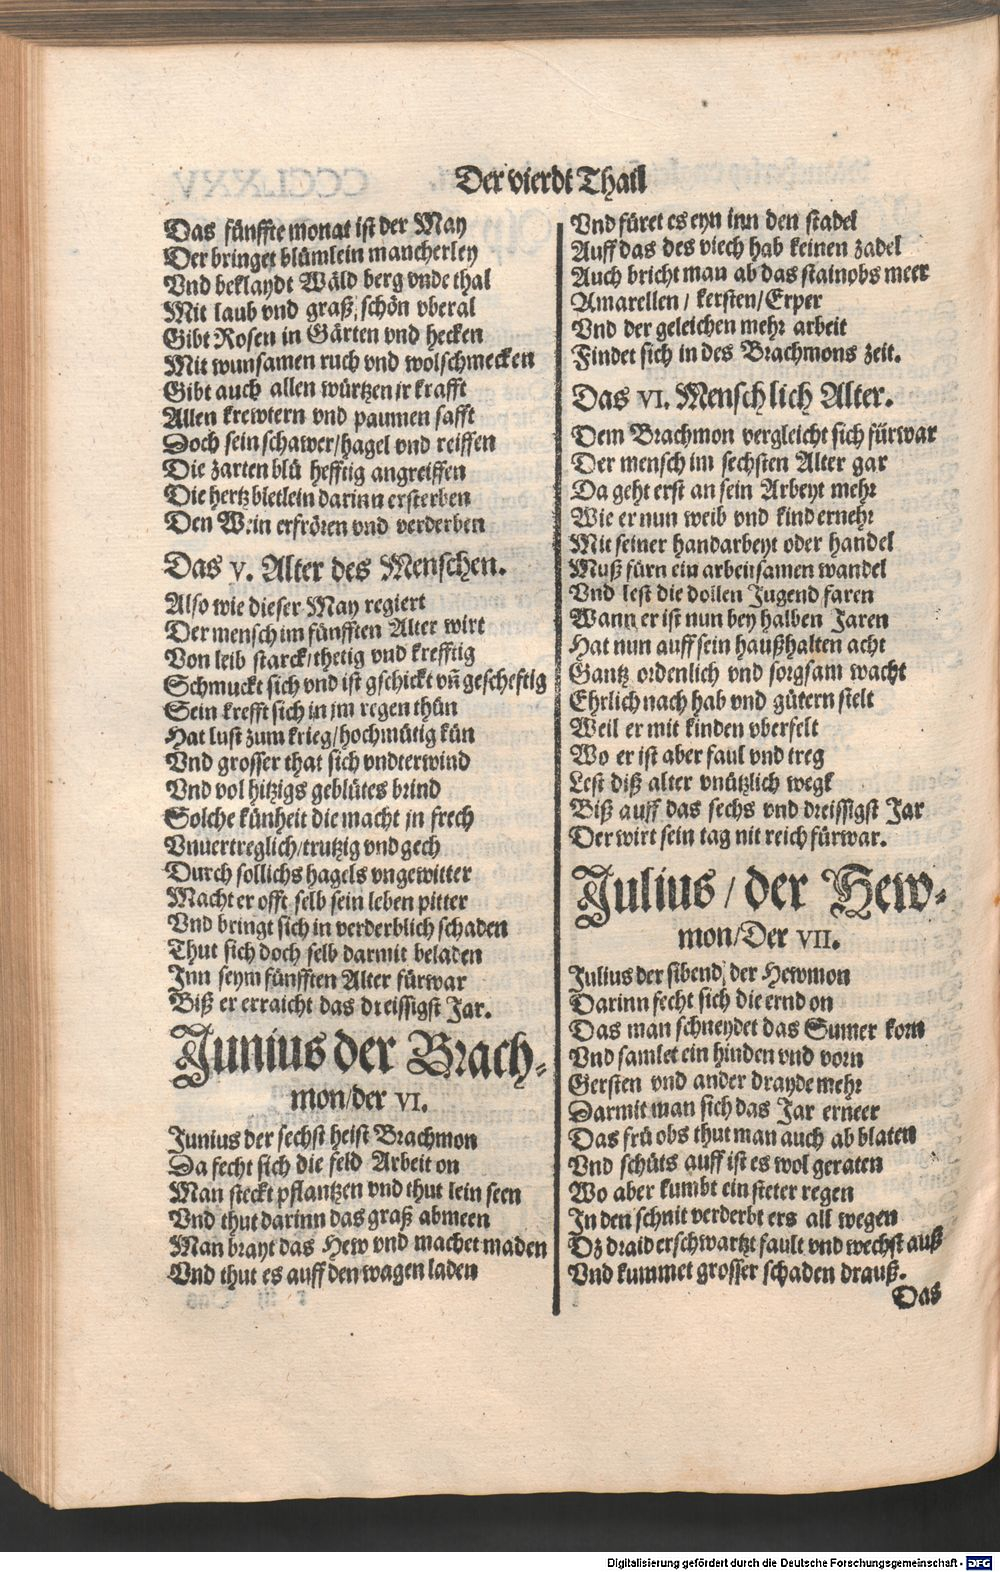 Der vierdt Thail
Das fünffte monat ist der May
Der bringet blümlein mancherley
Vnd beklaydt Wäld berg vnde thal
Mit laub vnd graß, schön vberal
Gibt Rosen in Gärten vnd hecken
Mit wunsamen ruch vnd wolschmecken
Gibt auch allen würtzen ir krafft
Allen krewtern vnd paumen safft
Doch sein schawer/hagel vnd reiffen
Die zarten blü hefftig angreiffen
Die hertz bletlein darinn ersterben
Den Wein erfrören vnd verderben
Das V. Alter des Menschen.
Also wie dieser May regiert
Der mensch im fünfften Alter wirt
Von leib starck/thetig vnd krefftig
Schmuckt sich vnd ist gschickt vñ gescheftig
Sein krefft sich in jm regen thün
Hat lust zum krieg/hochmütig kün
Vnd grosser that sich vndterwind
Vnd vol hitzigs geblütes brind
Solche künheit die macht jn frech
Vnuertreglich/trutzig vnd gech
Durch sollichs hagels vngewitter
Macht er offt selb sein leben pitter
Vnd bringt sich in verderblich schaden
Thut sich doch selb darmit beladen
Inn seym fünfften Alter fürwar
Biß er erraicht das dreissigst Jar.
Junius der Brach-
mon/der VI.
Junius der sechst heist Brachmon
Da fecht sich die feld Arbeit on
Man steckt pflantzen vnd thut lein seen
Vnd thut darinn das graß abmeen
Man brayt das Hew vnd machet maden
Vnd thut es auff den wagen laden
Vnd füret es eyn inn den stadel
Auff das des viech hab keinen zadel
Auch bricht man ab das stainobs meer
Amarellen/ kersten/Erper
Vnd der geleichen mehr arbeit
Findet sich in des Brachmons zeit.
Das VI. Menschlich Alter.
Dem Brachmon vergleicht sich fürwar
Der mensch im sechsten Alter gar
Da geht erst an sein Arbeyt mehr
Wie er nun weib vnd kind ernehr
Mit seiner handarbeyt oder handel
Muß fürn ein arbeitsamen wandel
Vnd lest die dollen Jugend faren
Wann er ist nun bey halben Jaren
Hat nun auff sein haußhalten acht
Gantz ordenlich vnd sorgsam wacht
Ehrlich nach hab vnd gütern stelt
Weil er mit kinden vberfelt
Wo er ist aber faul vnd treg
Lest diß alter vnützlich wegk
Biß auff das sechs vnd dreissigst Jar
Der wirt sein tag nit reich fürwar.
Julius/ der Hew-
mon/Der VII.
Julius der sibend, der Hewmon
Darinn fecht sich die ernd on
Das man schneydet das Sumer korn
Vnd samlet ein hinden vnd vorn
Gersten vnd ander drayde mehr
Darmit man sich das Jar erneer
Das frü obs thut man auch ab blaten
Vnd schüts auff ist es wol geraten
Wo aber kumbt ein steter regen
In den schnit verderbt ers all wegen
Dz draid erschwartzt fault vnd wechst auß
Vnd kummet grosser schaden drauß.
Das
Digitalisierung gefördert durch die Deutsche Forschungsgemeinschaft - DFG